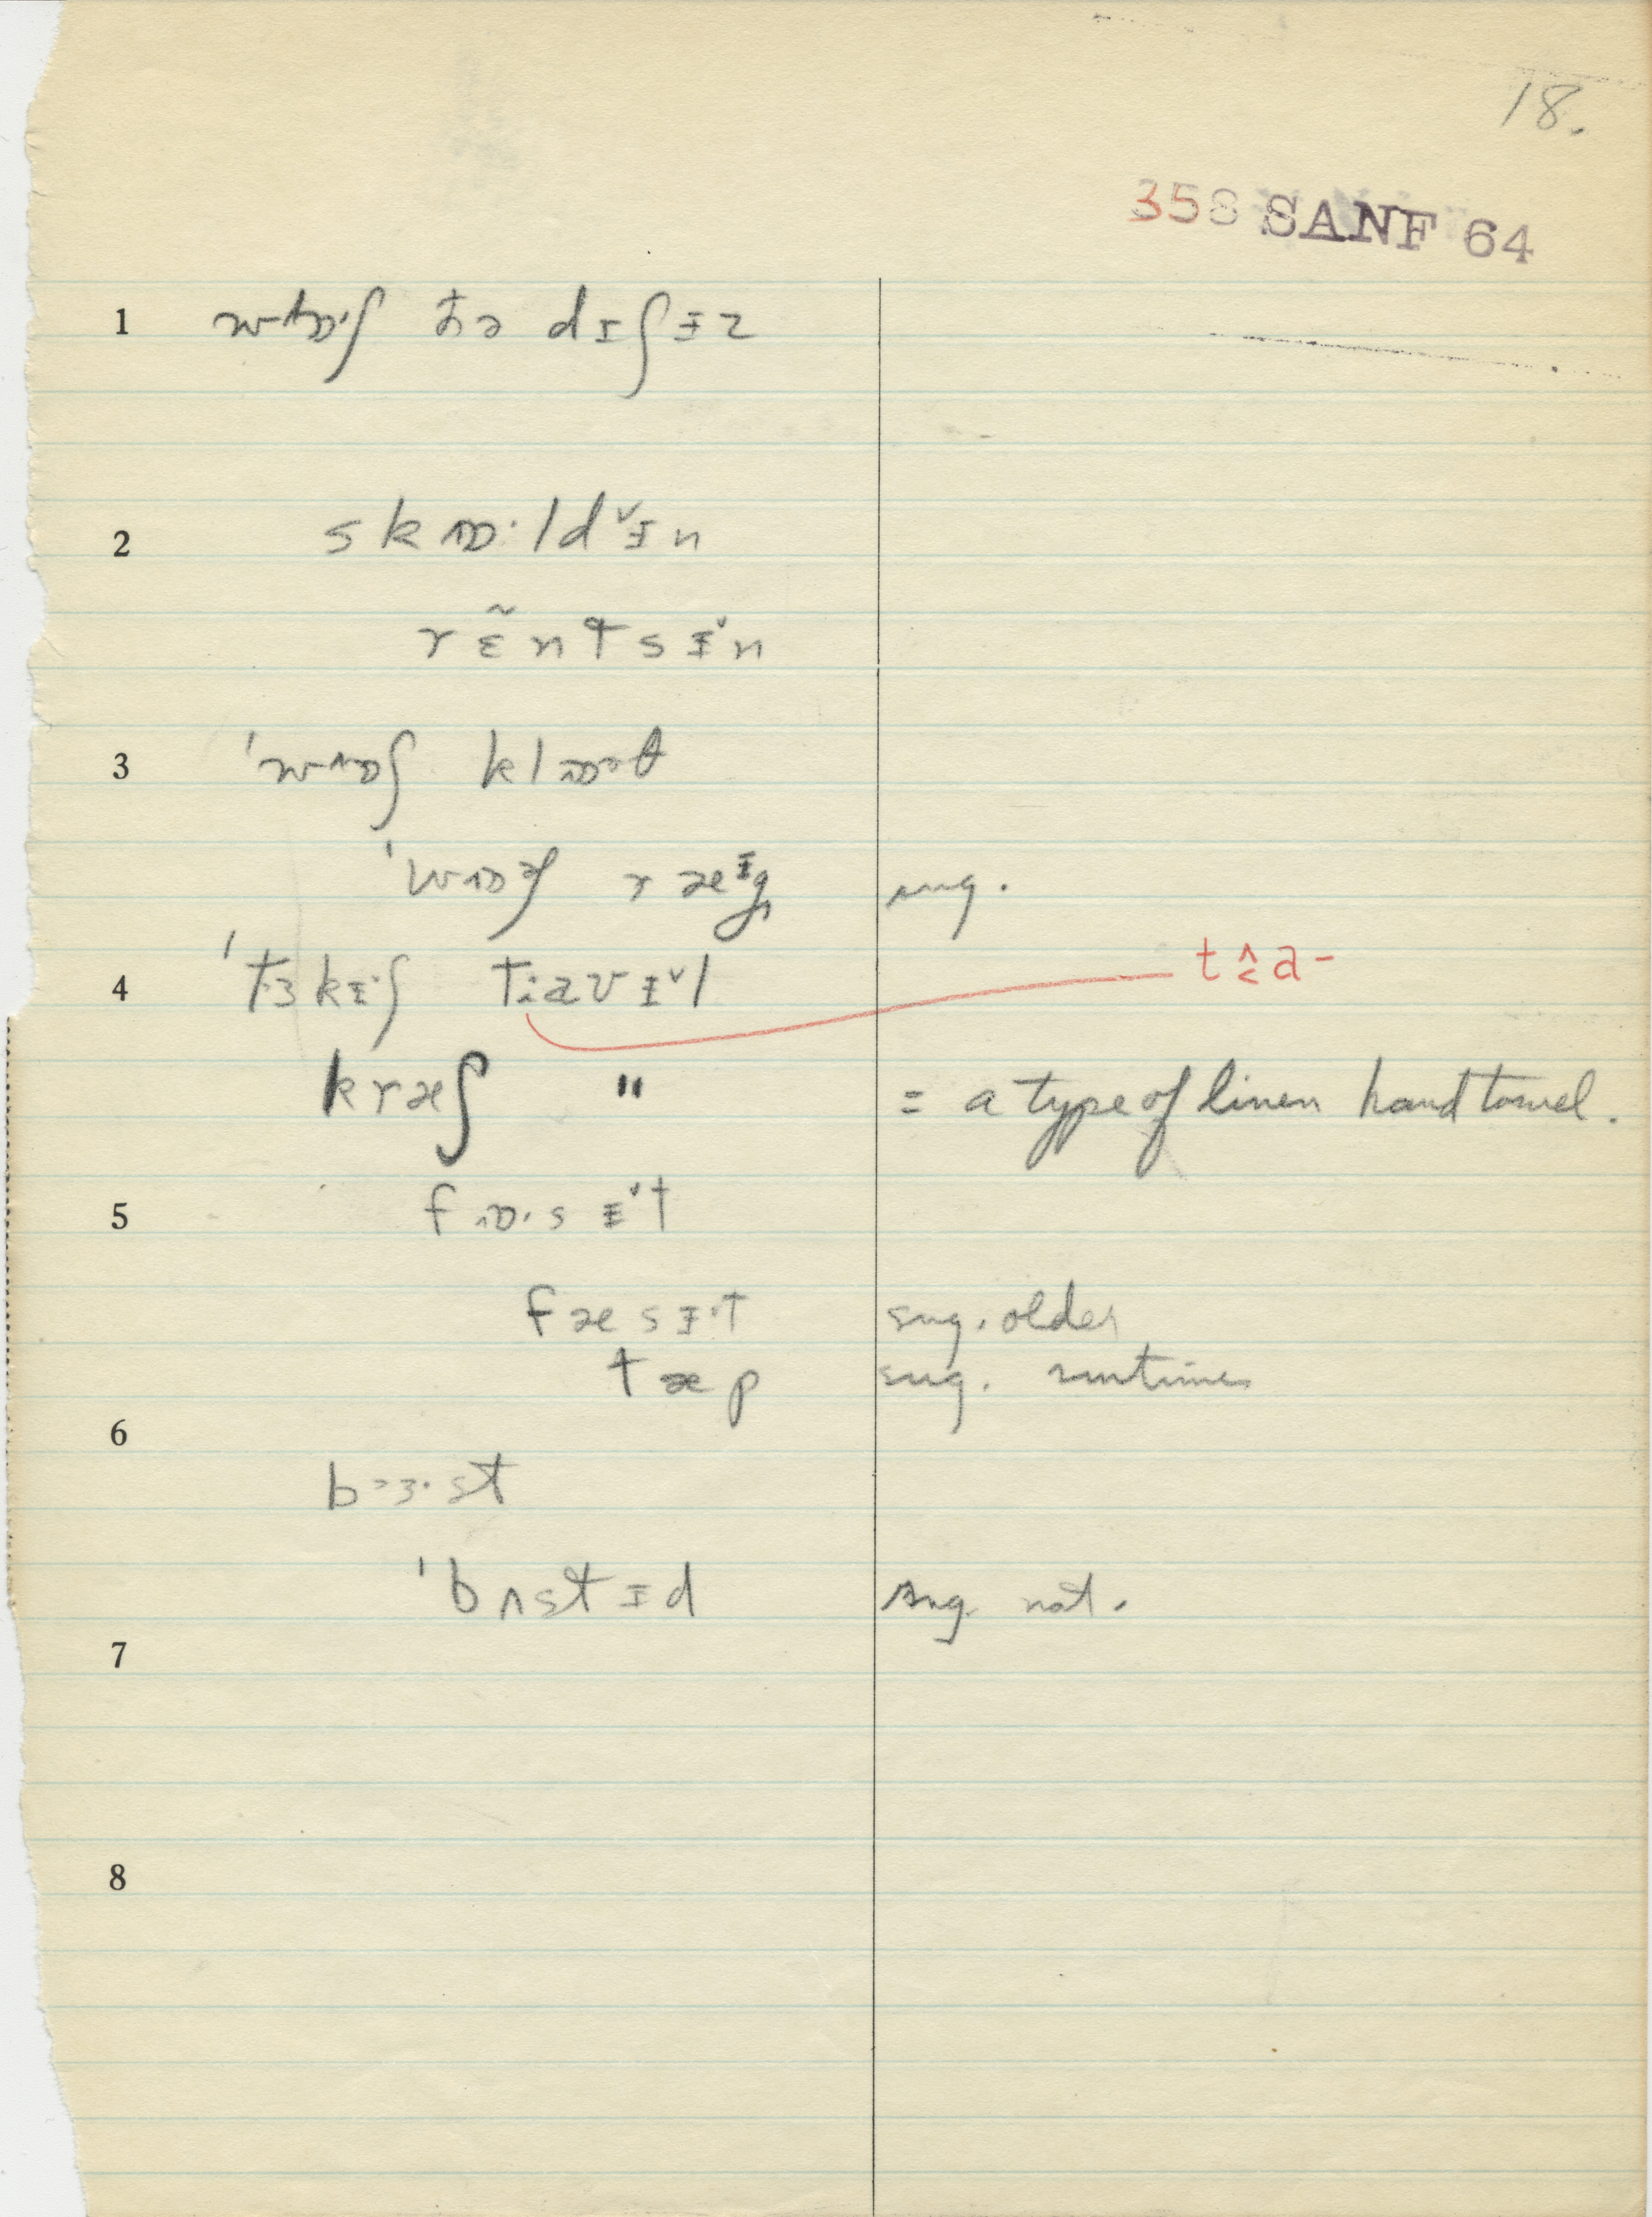 18.
358 SANF 64
1 wɒ·ʃ ðə dɪʃɨz
2 skɒ·ldɨ̌n
rɛ̃ntsɨ̌n
3 'wɒʃ klɒθ
'wɒʃ ræᵻg sug.
4 'tɜkɪʃ taʊɨ̌l t≮a-
kræʃ " = a type of linen hand towel.
5 fɒ·sɨ̌t
fæsɨt sug. older
tæp sug. sometimes
6
bɜ·st
'bʌstɨd sug. nat.
7
8